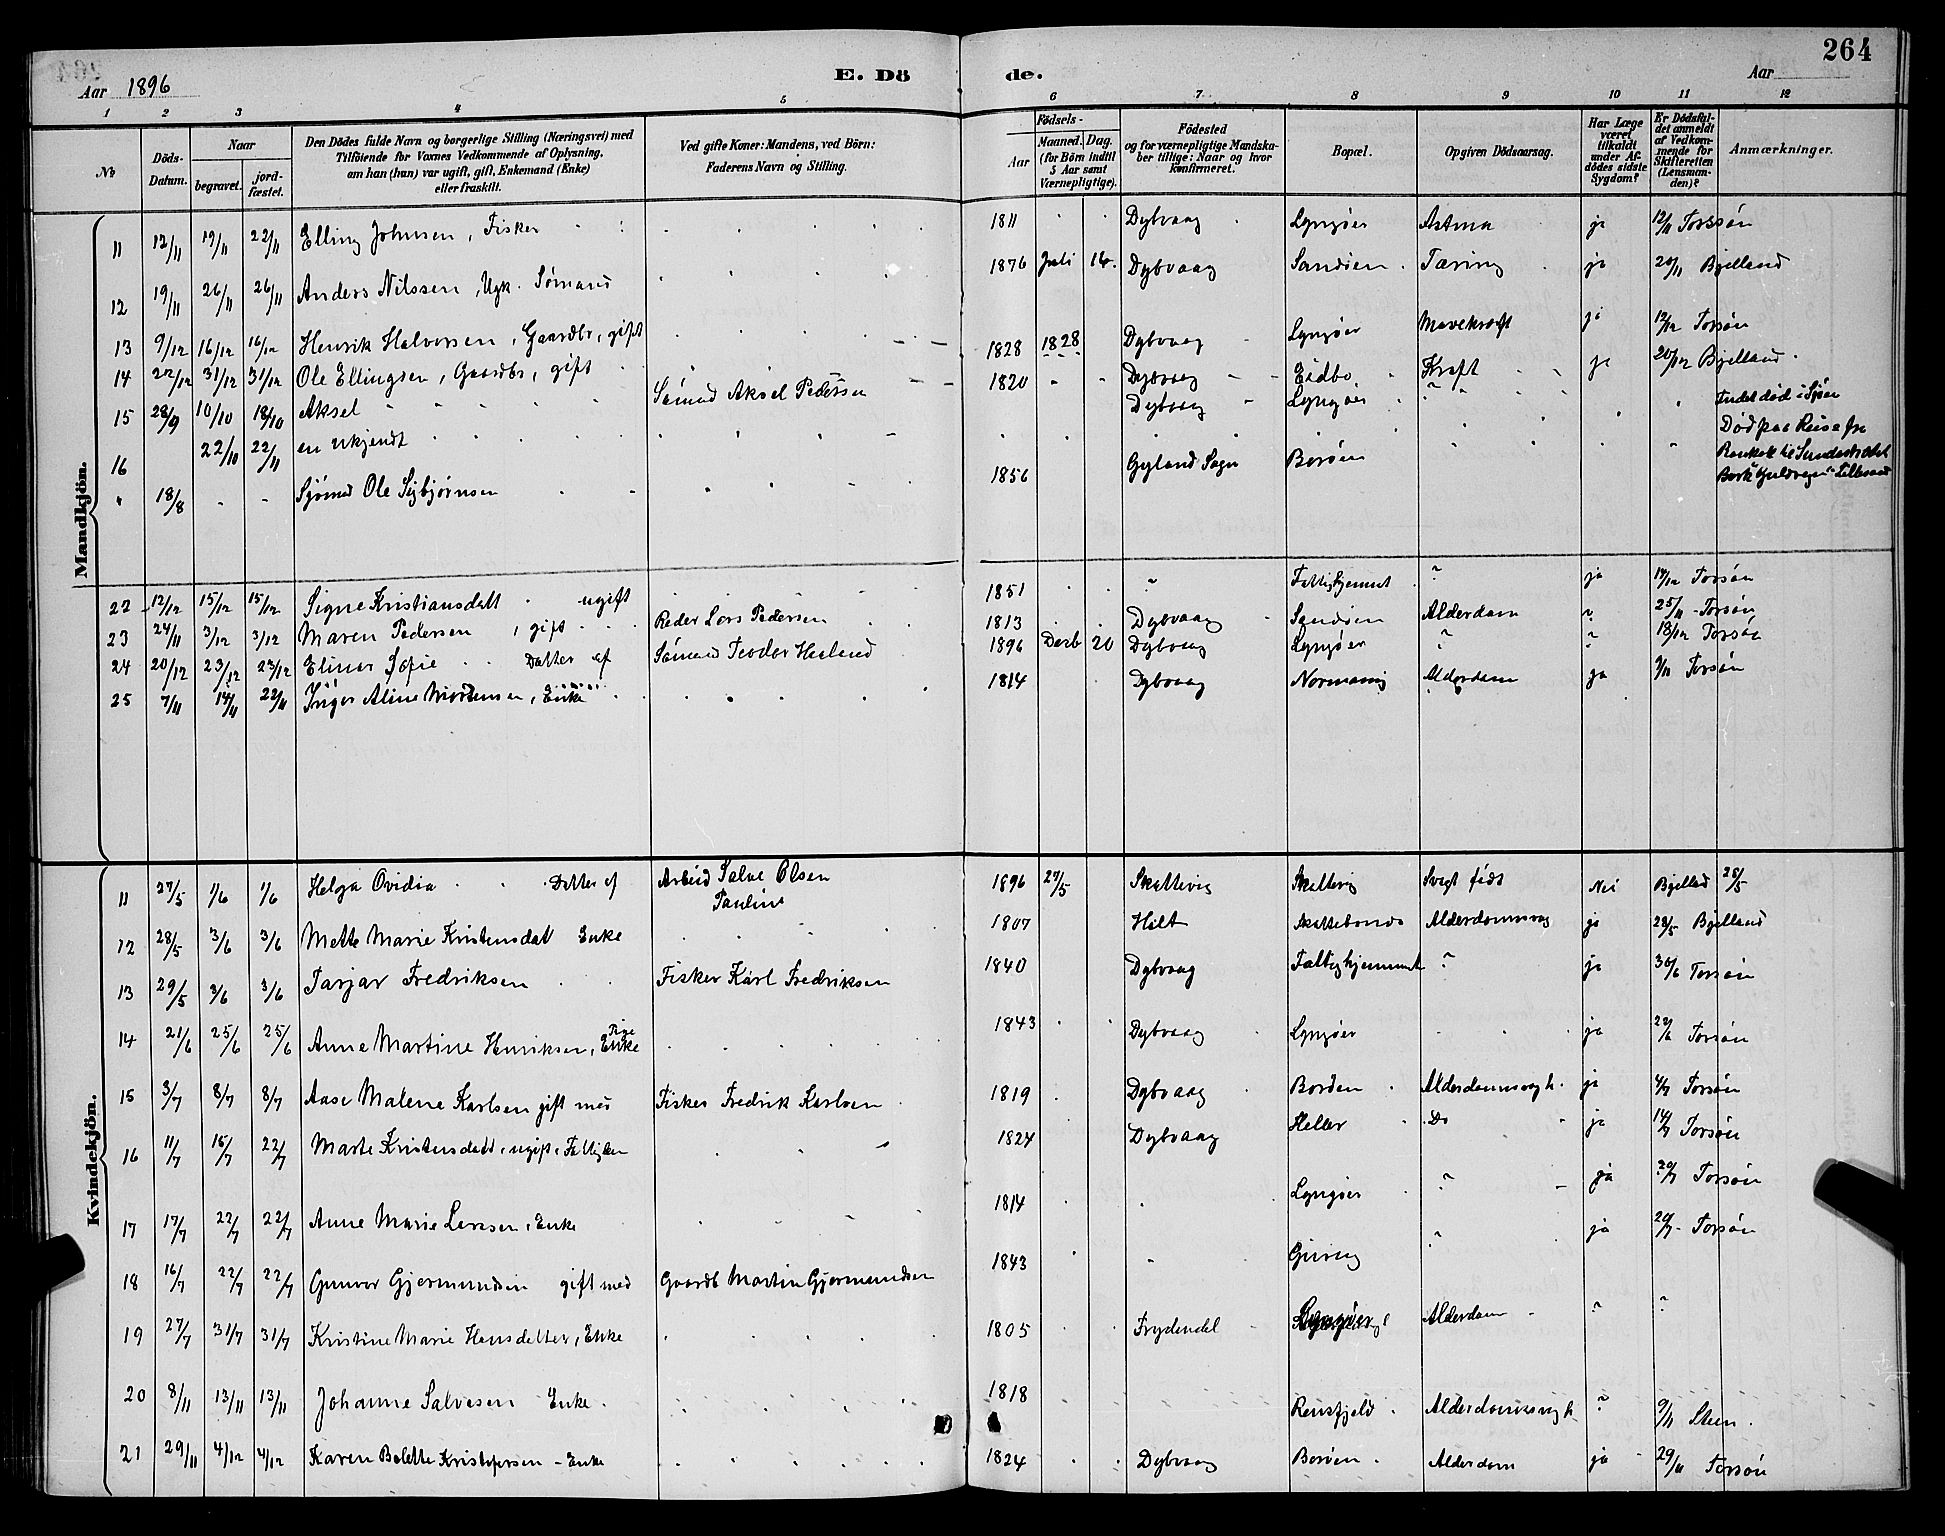 264
Aar 1896
E. Dö de.
Aar
1 2 3 4 5 6 7 8 9 10 11 12
No
Döds-Datum.
Naar
begravet.
jord-fæstet.
Den Dödes fulde Navn og borgerlige Stilling (Næringsvei) med Tilföiende for Voxnes Vedkommende af Oplysning, om han (hun) var ugift, gift, Enkemand (Enke) eller fraskilt.
Ved gifte Koner: Mandens, ved Börn: Faderens Navn og Stilling.
Födsels-
Aar
Maaned. Dag.
(for Börn indtil 5 Aar samt Værnepligtige).
Födested og for værnepligtige Mandskaber tillige: Naar og hvor konfirmeret.
Bopæl.
Opgiven Dödsaarsag.
Har Læge været tilkaldt under Afdödes sidste Sygdom?
Er Dödsfaldet anmeldt af Vedkommende for Skifteretten (Lensmanden)?
Anmærkninger.
Mandkjön.
11 12/11 19/11 22/11 Elling Johnsen, Fisker 1811 Dybvaag Lyngøer Astma ja 12/11 Torsøn
12 19/11 26/11 26/11 Anders Nilssen, Ugk. Sømand 1876 Juli 16. Dybvaag Sandøen Tæring ja 20/11 Bjelland
13 9/12 16/12 16/12 Henrik Halvorsen, Gaardbr, gift 1828 1828 Dybvaag Lyngøer Mavekræft ja 12/12 Torsøn
14 22/12 31/12 31/12 Ole Ellingsen, Gaardbr, gift 1820 Dybvaag Eidbo Kræft ja 20/12 Bjelland
15 28/9 10/10 18/10 Aksel Sømand Aksel Pedersen Dybvaag Lyngøer Fndet død i Sjøen
16 22/10 22/11 en Ukjendt
" 18/8 - - Sjømd Ole Sigbjørnsen 1856 Gyland Sogn Borøen Død paa Reise fra
til Sundsvall
Bark Lillesand
22 12/12 15/12 15/12 Signe Kristiansdatt ugift 1851 Fattighjemmet ? ja 14/12 Torsøn
23 24/11 3/12 3/12 Maren Pedersen, gift Reder Lars Pedersen 1813 Dybvaag Sandøen Alderdom ? 25/11 Torsøn
24 20/12 23/12 23/12 Elinor Sofie Datter af Sømand Teodor Haaland 1896 Decb 20 Dybvaag Lyngøer ? ? 18/12 Torsøn
25 7/11 14/11 22/11 Inger Aline Mortensen, Enke 1814 Dybvaag Normanvig Alderdom ja 9/11 Torsøn
Kvindekjön.
11 27/5 1/6 1/6 Helga Ovidia Datter af Arbeid Salve Olsen 1896 27/5 Skuttevig Skuttevig Svagt født Nei Bjelland 28/5
Pauline
12 28/5 3/6 3/6 Mette Marie Kristensdatt Enke 1807 Holt Alderdomssvag ja 28/5 Bjelland
13 29/5 3/6 3/6 Tarjar Fredriksen Fisker Karl Fredriksen 1840 Dybvaag Fattighjemmet ? ja 30/6 Torsøn
14 21/6 25/6 25/6 Anne Martine Henriksen, Enke Pige 1843 Dybvaag Lyngøer ja 22/6 Torsøn
15 3/7 8/7 8/7 Aase Malene Karlsen gift med Fisker Fredrik Karlsen 1819 Dybvaag Borøen Alderdomssvagh. ja 4/7 Torsøn
16 11/7 15/7 22/7 Marte Kristensdatt, ugift, Fattiglem 1824 Dybvaag Heller Do ja 14/7 Torsøn
17 17/7 22/7 22/7 Anne Marie Larsen, Enke 1814 Lyngøer ? ja 20/7 Torsøn
18 16/7 22/7 22/7 Gunvor Gjermundsen gift med Gaardb Martin Gjermundsen 1843 Gjeving ? ja 20/7 Torsøn
19 27/7 31/7 31/7 Kristine Marie Hansdatter, Enke 1805 Frydendal Alderdom ? ?
20 8/11 13/11 13/11 Johanne Salvesen Enke 1818 Rensfjeld Alderdomssvagh ? 9/11 Steen.
21 29/11 4/12 4/12 Karen Bolette Kristofersen - Enke 1824 Dybvaag Borøen Alderdom ja 29/11 Torsøn